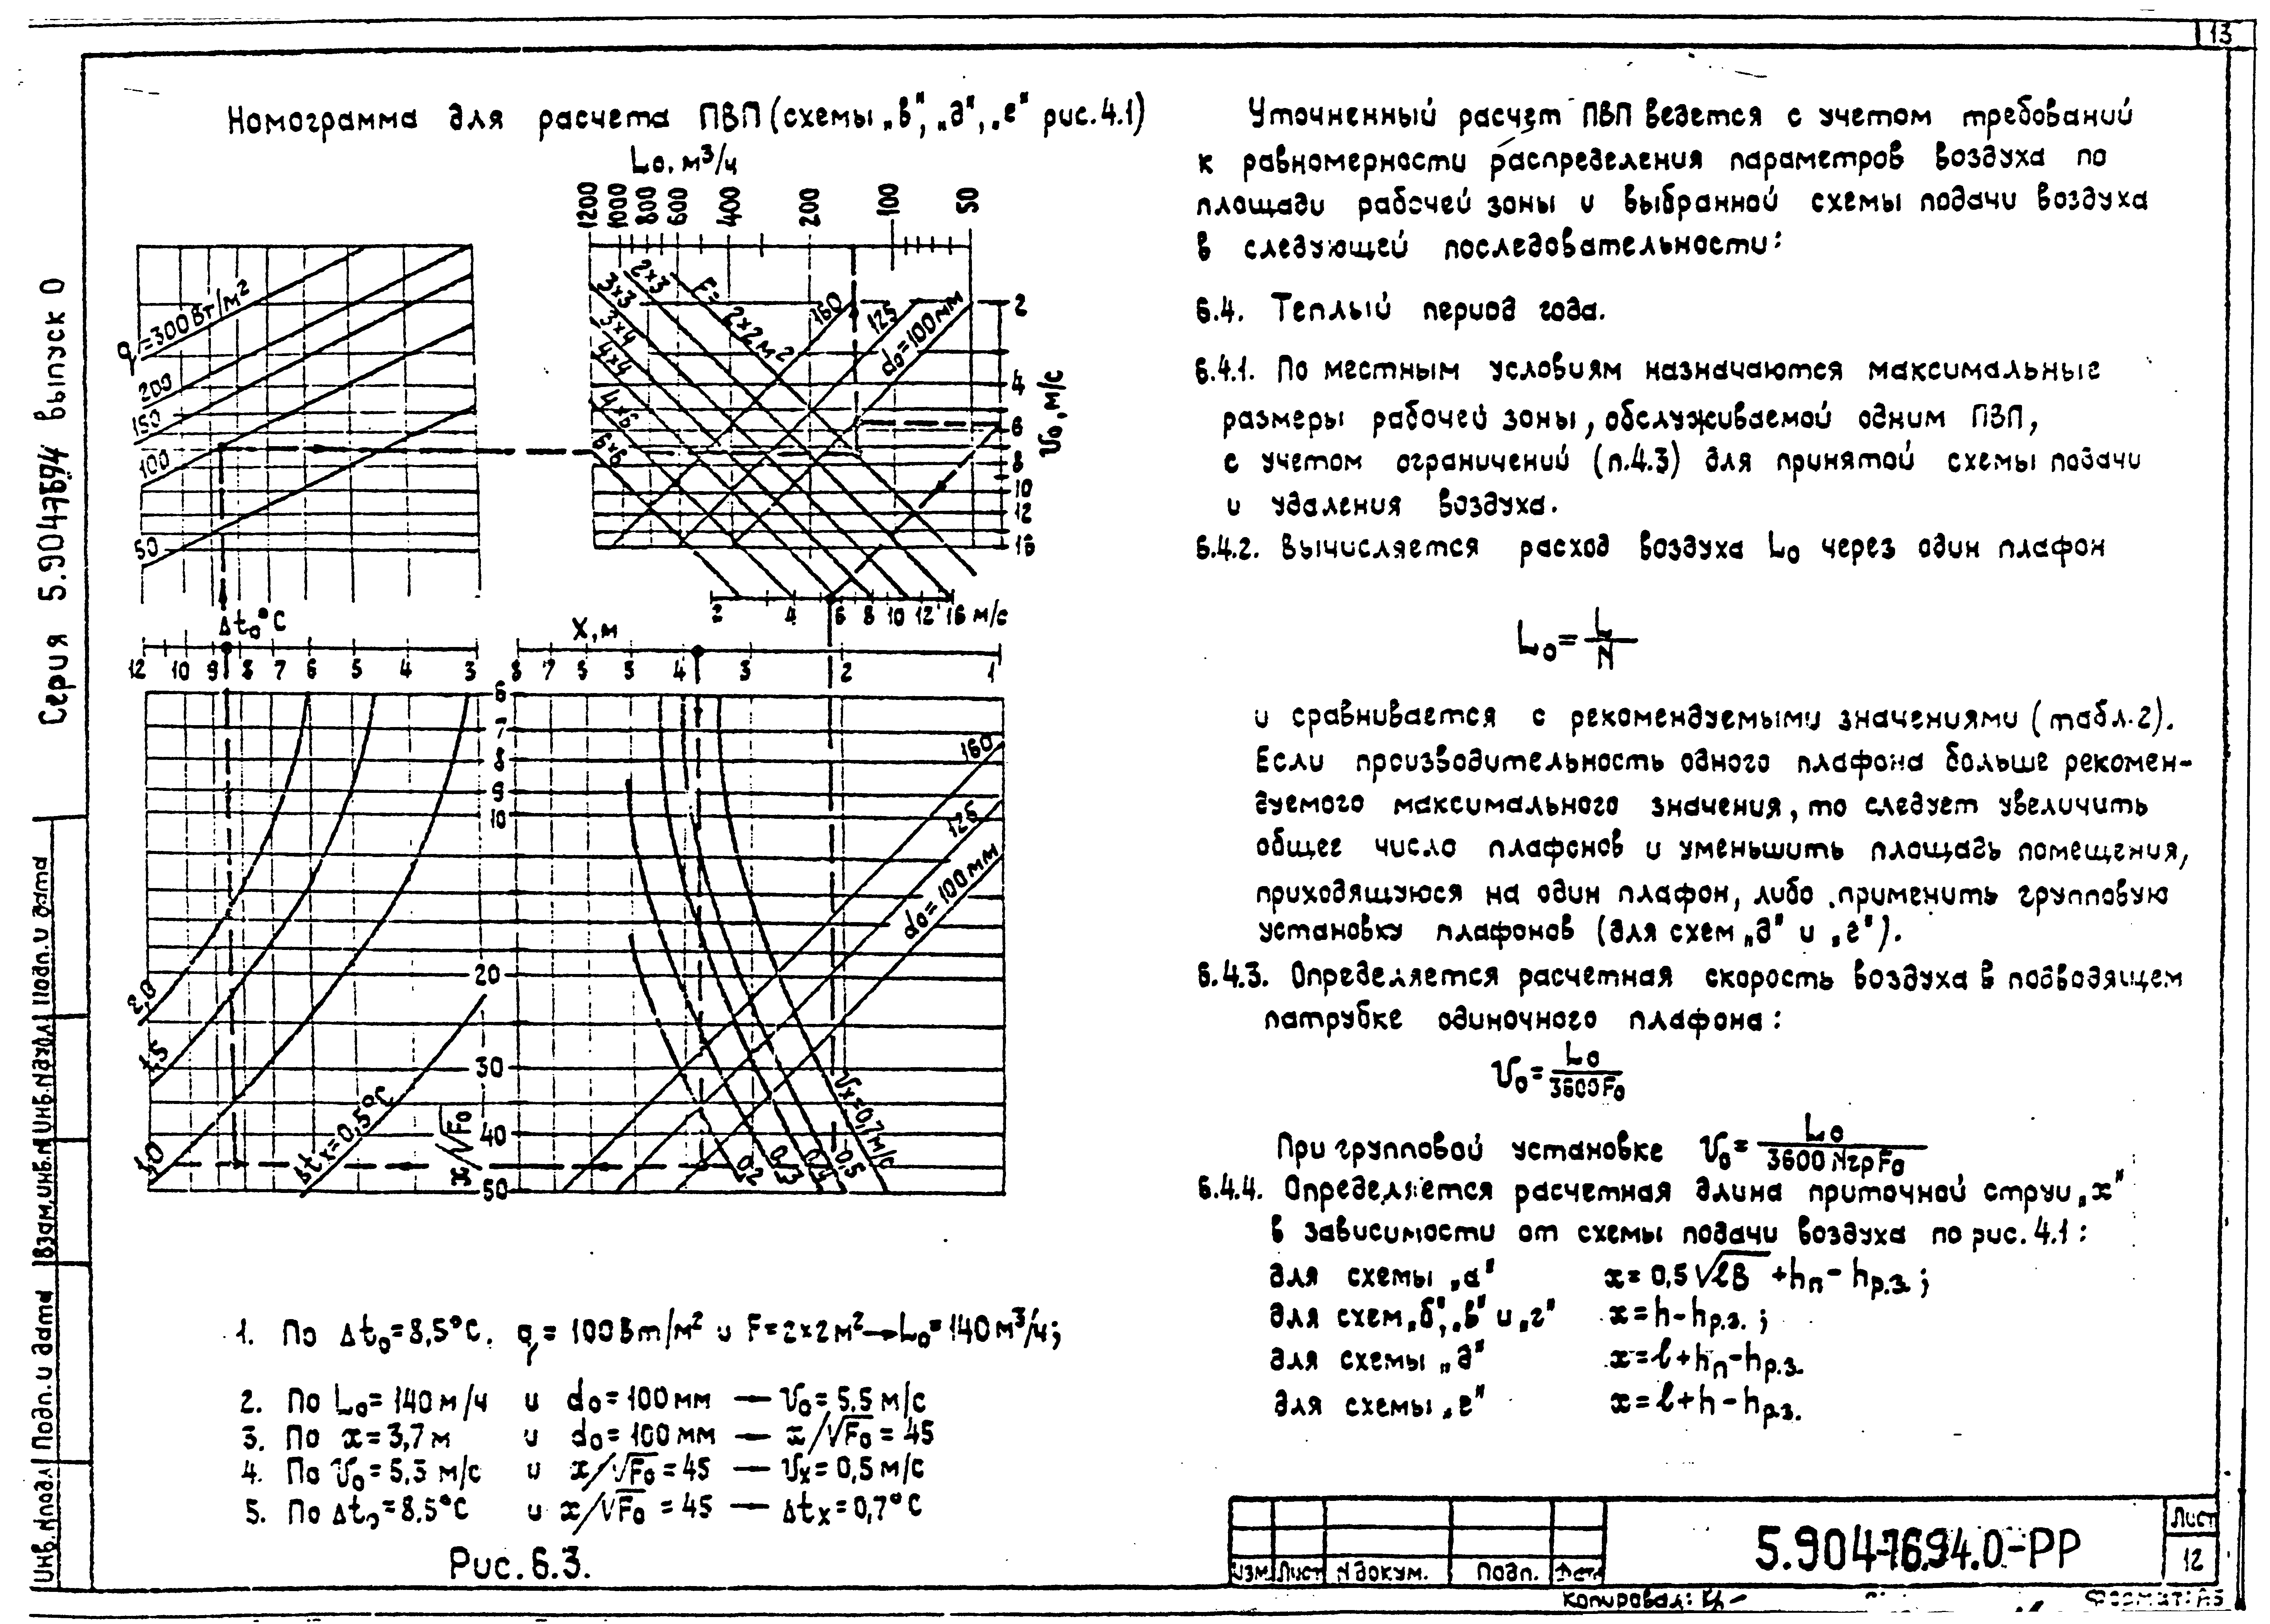 13
Номограмма для расчета ПВП (схемы „в", „д", „е" рис.4.1)
L₀, м³/ч
1200 1000 800 600 400 200 100 50
q=300Вт/м²
200
150
100
50
2×3
3×3
3×4
4×4
4×6
6×6
F=2×2м²
160
125
d₀=100мм
2
4
6
8
10
12
16
V₀, м/с
2 4 6 8 10 12 16 м/с
Δt₀°C
X, м
12 10 9 8 7 6 5 4 3
8 7 6 5 4 3 2 1
6
7
8
9
10
20
30
40
50
x/√F₀
2,0
1,5
1,0
Δtx=0,5°C
160
125
d₀=100мм
0,2 0,3 0,4 0,5 Vx=0,7м/с
1. По Δt₀=8,5°C, q=100Вт/м² и F=2×2м²→L₀=140м³/ч;
2. По L₀=140м/ч и d₀=100мм — V₀=5.5м/с
3. По x=3,7м и d₀=100мм — x/√F₀=45
4. По V₀=5,3 м/с и x/√F₀=45 — Vx=0,5м/с
5. По Δt₀=8.5°C и x/√F₀=45 — Δtx=0,7°C
Рис.6.3.
Уточненный расчет ПВП ведется с учетом требований
к равномерности распределения параметров воздуха по
площади рабочей зоны и выбранной схемы подачи воздуха
в следующей последовательности:
6.4. Теплый период года.
6.4.1. По местным условиям назначаются максимальные
размеры рабочей зоны, обслуживаемой одним ПВП,
с учетом ограничений (п.4.3) для принятой схемы подачи
и удаления воздуха.
6.4.2. Вычисляется расход воздуха L₀ через один плафон
L₀=L/N
и сравнивается с рекомендуемыми значениями (табл.2).
Если производительность одного плафона больше рекомен-
дуемого максимального значения, то следует увеличить
общее число плафонов и уменьшить площадь помещения,
приходящуюся на один плафон, либо применить групповую
установку плафонов (для схем „д" и „г").
6.4.3. Определяется расчетная скорость воздуха в подводящем
патрубке одиночного плафона:
V₀=L₀/3600F₀
При групповой установке V₀=L₀/3600NгрF₀
6.4.4. Определяется расчетная длина приточной струи „x"
в зависимости от схемы подачи воздуха по рис.4.1:
для схемы „а" x=0,5√lB+hп-hр.з.;
для схем „б", „в" и „г" x=h-hр.з.;
для схемы „д" x=l+hп-hр.з.
для схемы „е" x=l+h-hр.з.
Изм. Лист N докум. Подп. Дата
5.904-76.94.0-РР
Лист
12
Копировал:
Формат: А3
Серия 5.904-76.94 выпуск 0
Инв.Nподл Подп.и дата Взам.инв.N Инв.Nдубл. Подп.и дата